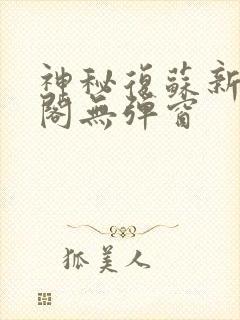 神秘復蘇新
閣無彈窗
狐美人